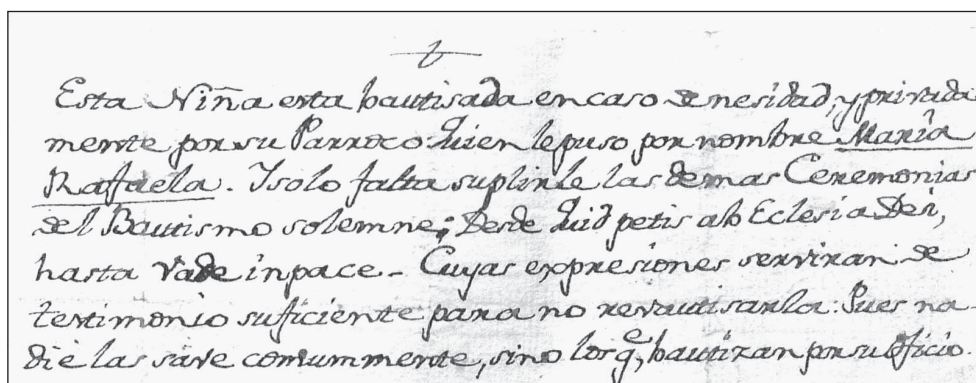 Esta Niña esta bautisada en caso de nesidad, y privada
mente por su Parroco quien le puso por nombre Maria
Rafaela. Y solo falta suplirle las demas Ceremonias
del Bautismo solemne; Desde quid petis ab Eclesia Dei,
hasta vade in pace - Cuyas expresiones serviran de
testimonio suficiente para no revautisarla: Pues na
die las save comummente, sino los qe, bautizan por su oficio.